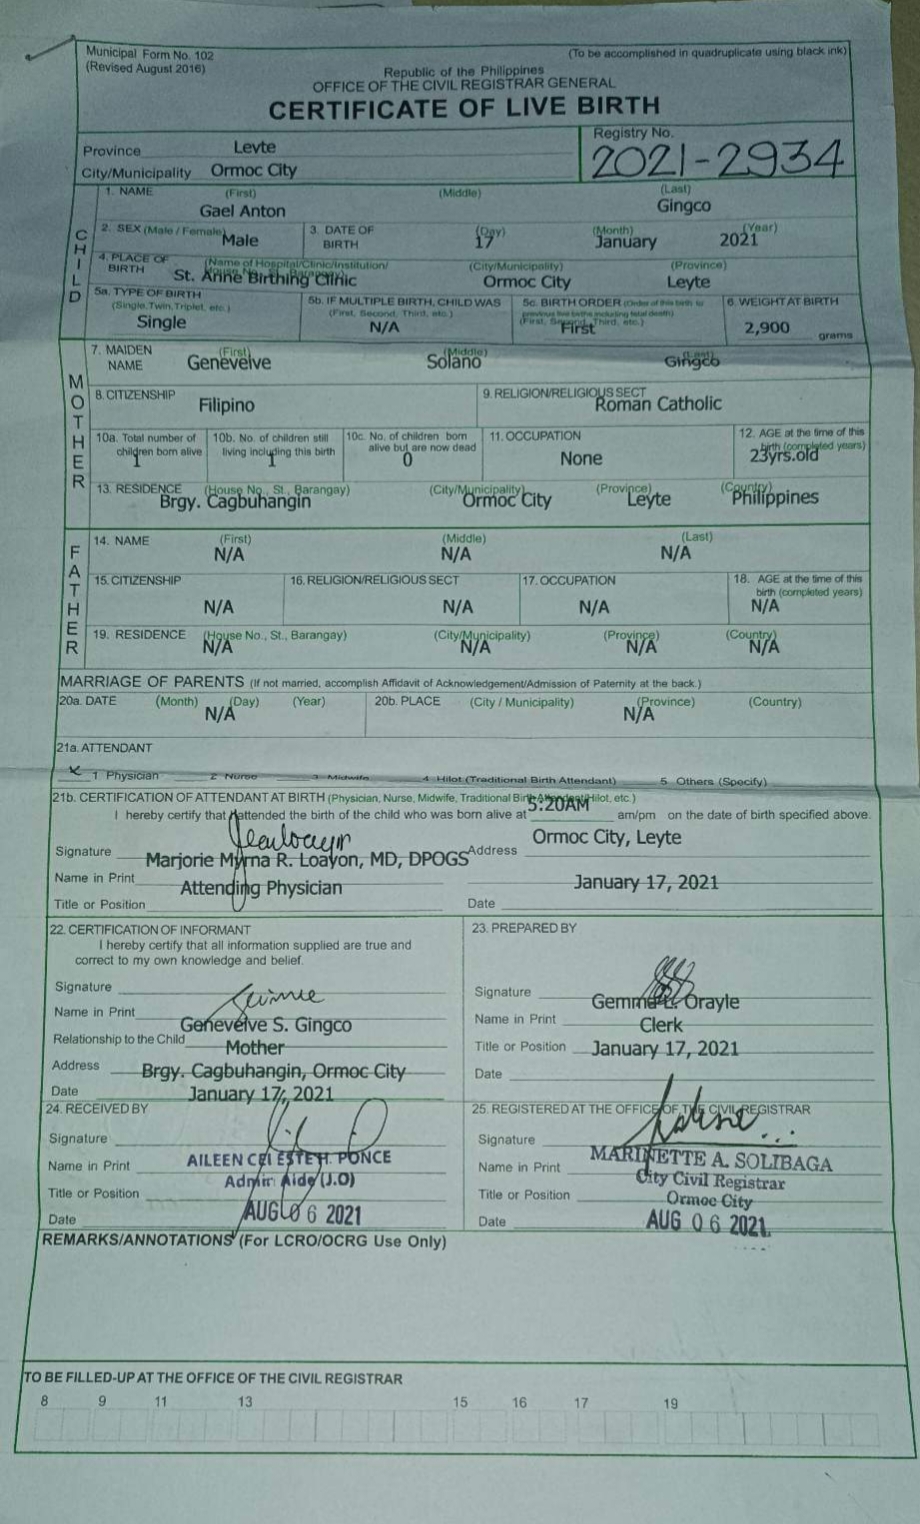 Municipal Form No. 102
(Revised August 2016)
(To be accomplished in quadruplicate using black ink)
Republic of the Philippines
OFFICE OF THE CIVIL REGISTRAR GENERAL
CERTIFICATE OF LIVE BIRTH
Province Leyte
City/Municipality Ormoc City
Registry No.
2021-2934
CHILD
1. NAME (First) (Middle) (Last)
Gael Anton Gingco
2. SEX (Male / Female) Male
3. DATE OF BIRTH (Day) (Month) (Year)
17 January 2021
4. PLACE OF BIRTH (Name of Hospital/Clinic/Institution/ (City/Municipality) (Province)
St. Anne Birthing Clinic Ormoc City Leyte
5a. TYPE OF BIRTH (Single, Twin, Triplet, etc.)
Single
5b. IF MULTIPLE BIRTH, CHILD WAS (First, Second, Third, etc.)
N/A
5c. BIRTH ORDER (Order of this birth to previous live births including fetal death) (First, Second, Third, etc.)
First
6. WEIGHT AT BIRTH
2,900 grams
MOTHER
7. MAIDEN NAME (First) (Middle) (Last)
Geneveive Solano Gingco
8. CITIZENSHIP
Filipino
9. RELIGION/RELIGIOUS SECT
Roman Catholic
10a. Total number of children born alive
1
10b. No. of children still living including this birth
1
10c. No. of children born alive but are now dead
0
11. OCCUPATION
None
12. AGE at the time of this birth (completed years)
23yrs.old
13. RESIDENCE (House No., St., Barangay) (City/Municipality) (Province) (Country)
Brgy. Cagbuhangin Ormoc City Leyte Philippines
FATHER
14. NAME (First) (Middle) (Last)
N/A N/A N/A
15. CITIZENSHIP
N/A
16. RELIGION/RELIGIOUS SECT
N/A
17. OCCUPATION
N/A
18. AGE at the time of this birth (completed years)
N/A
19. RESIDENCE (House No., St., Barangay) (City/Municipality) (Province) (Country)
N/A N/A N/A N/A
MARRIAGE OF PARENTS (If not married, accomplish Affidavit of Acknowledgement/Admission of Paternity at the back.)
20a. DATE (Month) (Day) (Year)
N/A
20b. PLACE (City / Municipality) (Province) (Country)
N/A
21a. ATTENDANT
x 1 Physician 2 Nurse 3 Midwife 4 Hilot (Traditional Birth Attendant) 5 Others (Specify)
21b. CERTIFICATION OF ATTENDANT AT BIRTH (Physician, Nurse, Midwife, Traditional Birth Attendant/Hilot, etc.)
I hereby certify that I attended the birth of the child who was born alive at 5:20AM am/pm on the date of birth specified above.
Signature
Name in Print Marjorie Myrna R. Loayon, MD, DPOGS
Title or Position Attending Physician
Address Ormoc City, Leyte
Date January 17, 2021
22. CERTIFICATION OF INFORMANT
I hereby certify that all information supplied are true and
correct to my own knowledge and belief.
Signature
Name in Print Genevelve S. Gingco
Relationship to the Child Mother
Address Brgy. Cagbuhangin, Ormoc City
Date January 17, 2021
23. PREPARED BY
Signature
Name in Print Gemma L. Orayle
Title or Position Clerk
Date January 17, 2021
24. RECEIVED BY
Signature
Name in Print AILEEN CELESTE H. PONCE
Title or Position Admin Aide (J.O)
Date AUG 06 2021
25. REGISTERED AT THE OFFICE OF THE CIVIL REGISTRAR
Signature
Name in Print MARINETTE A. SOLIBAGA
Title or Position City Civil Registrar
Ormoc City
Date AUG 06 2021
REMARKS/ANNOTATIONS (For LCRO/OCRG Use Only)
TO BE FILLED-UP AT THE OFFICE OF THE CIVIL REGISTRAR
8 9 11 13 15 16 17 19